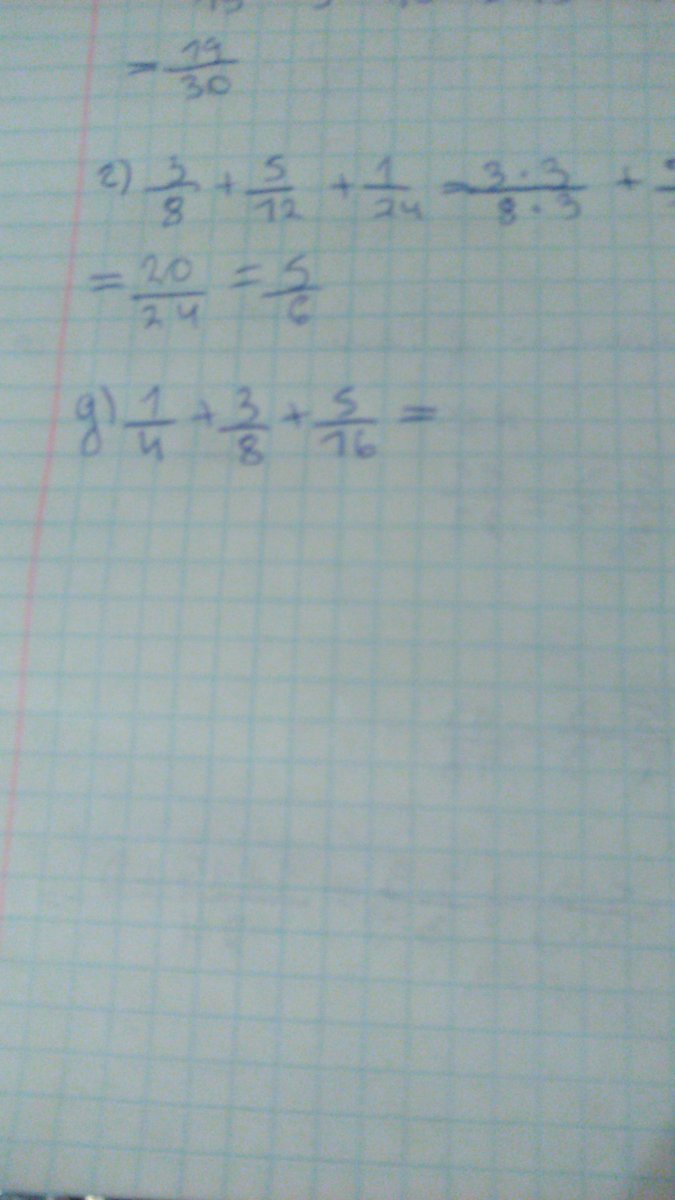 = 19/30
г) 3/8 + 5/12 + 1/24 = 3·3/8·3 +
= 20/24 = 5/6
д) 1/4 + 3/8 + 5/16 =